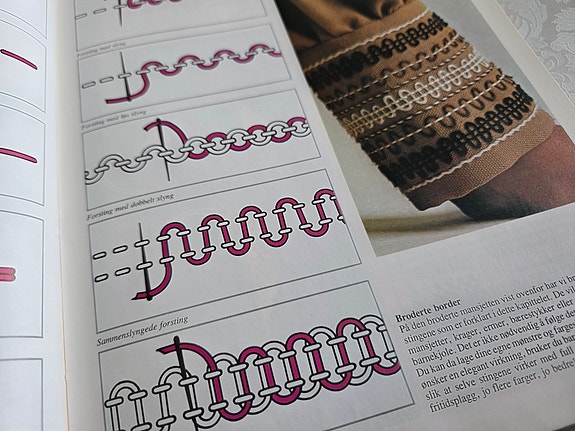 Forsting med slyng
Forsting med løs slyng
Forsting med dobbelt slyng
Sammenslyngede forsting
Broderte border
På den broderte mansjetten vist ovenfor har vi br
stingene som er forklart i dette kapitelet. De vil
mansjetter, krager, ermer, bærestykker eller
barnekjole. Det er ikke nødvendig å følge de
Du kan lage dine egne mønstre og farges
ønsker en elegant virkning, bruker du bar
slik at selve stingene virker med full
fritidsplagg, jo flere farger, jo bedre